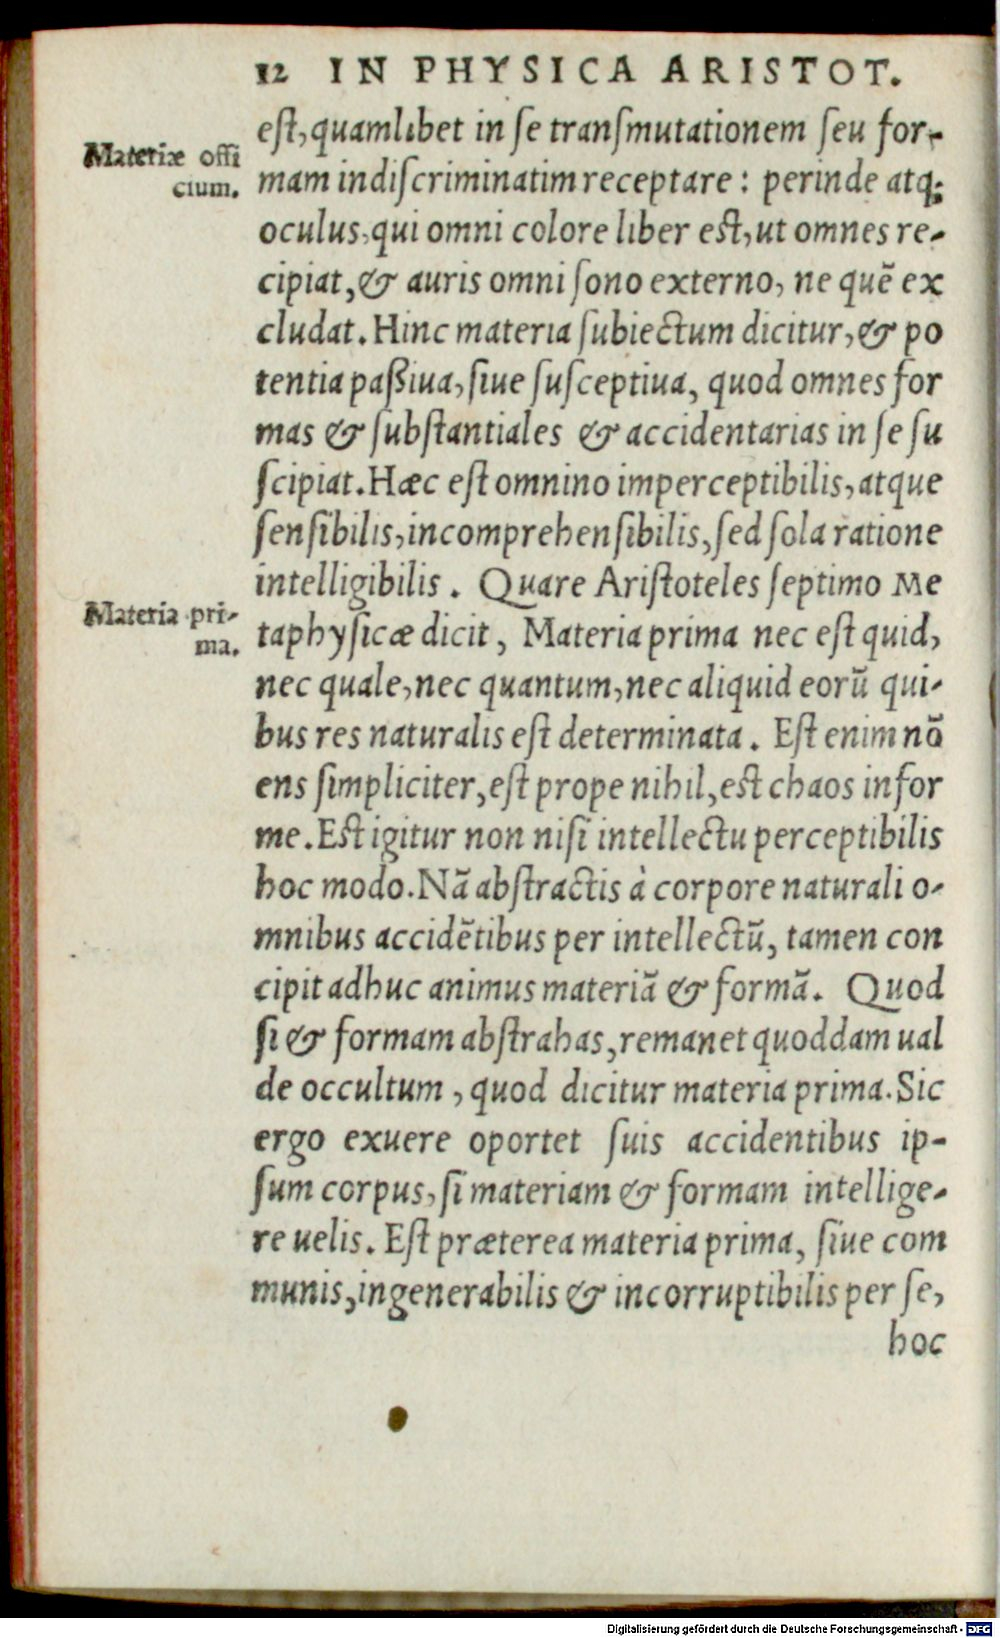 12 IN PHYSICA ARISTOT.
eſt, quamlibet in ſe tranſmutationem ſeu for-
Materiæ offi
cium.
mam indiſcriminatim receptare: perinde atq;
oculus, qui omni colore liber eſt, ut omnes re-
cipiat, & auris omni ſono externo, ne quẽ ex
cludat. Hinc materia ſubiectum dicitur, & po
tentia paſsiua, ſiue ſuſceptiua, quod omnes for
mas & ſubſtantiales & accidentarias in ſe ſu
ſcipiat. Hæc eſt omnino imperceptibilis, atque
ſenſibilis, incomprehenſibilis, ſed ſola ratione
intelligibilis. Quare Ariſtoteles ſeptimo Me
Materia pri-
ma.
taphyſicæ dicit, Materia prima nec eſt quid,
nec quale, nec quantum, nec aliquid eorũ qui-
bus res naturalis eſt determinata. Eſt enim nõ
ens ſimpliciter, eſt prope nihil, eſt chaos infor
me. Eſt igitur non niſi intellectu perceptibilis
hoc modo. Nã abſtractis à corpore naturali o-
mnibus accidẽtibus per intellectũ, tamen con
cipit adhuc animus materiã & formã. Quod
ſi & formam abſtrahas, remanet quoddam ual
de occultum, quod dicitur materia prima. Sic
ergo exuere oportet ſuis accidentibus ip-
ſum corpus, ſi materiam & formam intellige-
re uelis. Eſt præterea materia prima, ſiue com
munis, ingenerabilis & incorruptibilis per ſe,
hoc
Digitalisierung gefördert durch die Deutsche Forschungsgemeinschaft - DFG